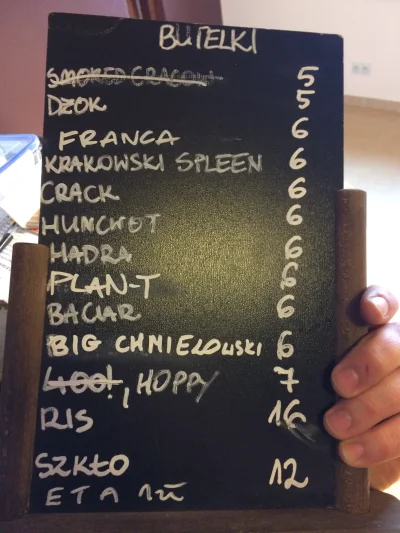 BUTELKI
SMOKED CRACOW 5
DZOK 5
FRANCA 6
KRAKOWSKI SPLEEN 6
CRACK 6
HUNCWOT 6
HADRA 6
PLAN-T 6
BACIAR 6
BIG CHMIELOWSKI 6
400!, HOPPY 7
RIS 16
SZKŁO 12
ETA 1zł